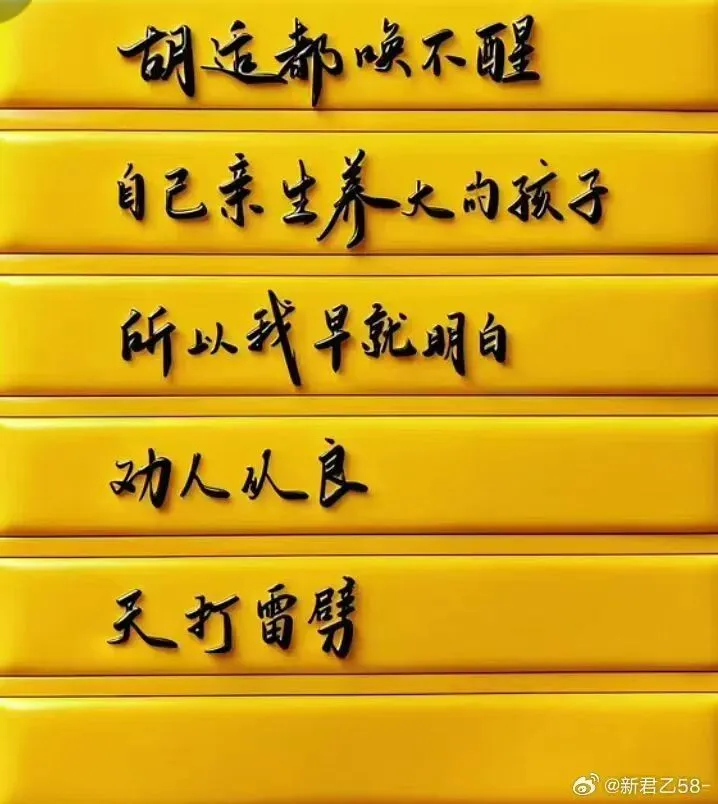 胡适都唤不醒
自己亲生养大的孩子
所以我早就明白
劝人从良
天打雷劈
@新君乙58-